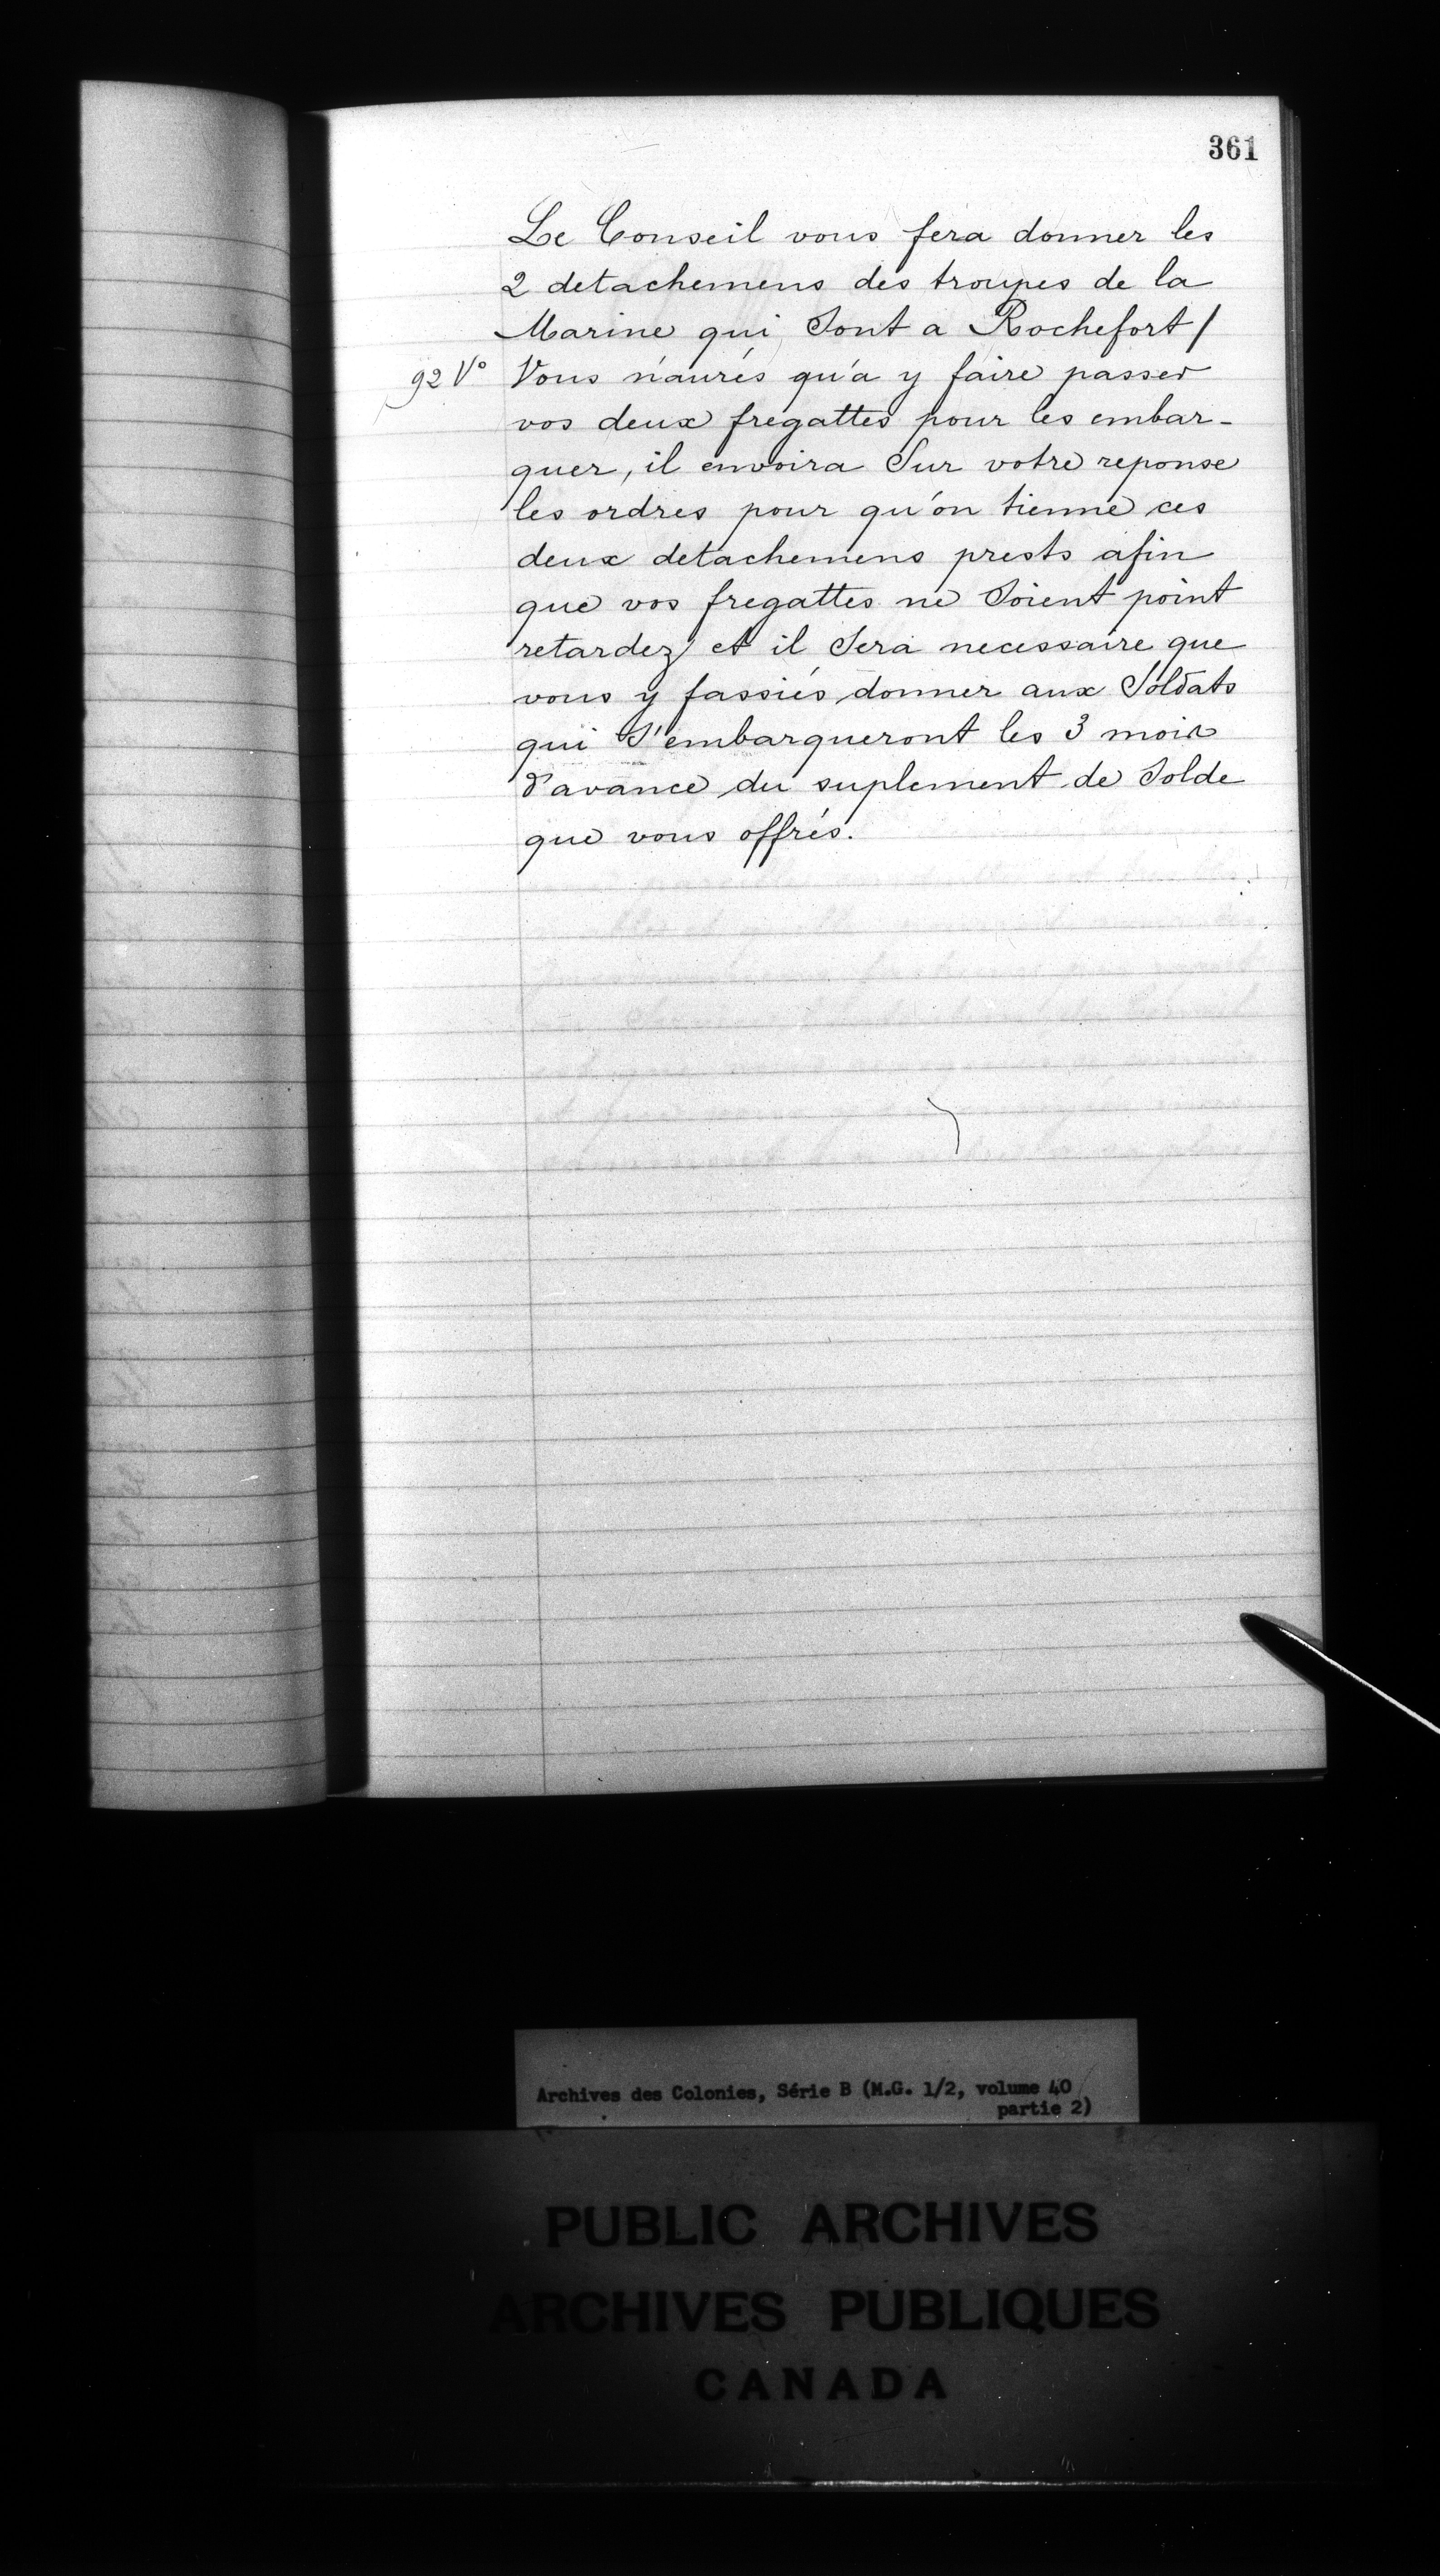 361
Le Conseil vous fera donner les
2 detachemens des troupes de la
Marine qui Sont a Rochefort /
92 V° Vous n'aurés qu'a y faire passer
vos deux fregattes pour les embar-
quer, il envoira Sur votre reponse
les ordres pour qu'on tienne ces
deux detachemens prests afin
que vos fregattes ne Soient point
retardez et il Sera necessaire que
vous y fassiés donner aux Soldats
qui S'embarqueront les 3 mois
d'avance du suplement de Solde
que vous offrés.
Archives des Colonies, Série B (M.G. 1/2, volume 40
partie 2)
PUBLIC ARCHIVES
ARCHIVES PUBLIQUES
CANADA